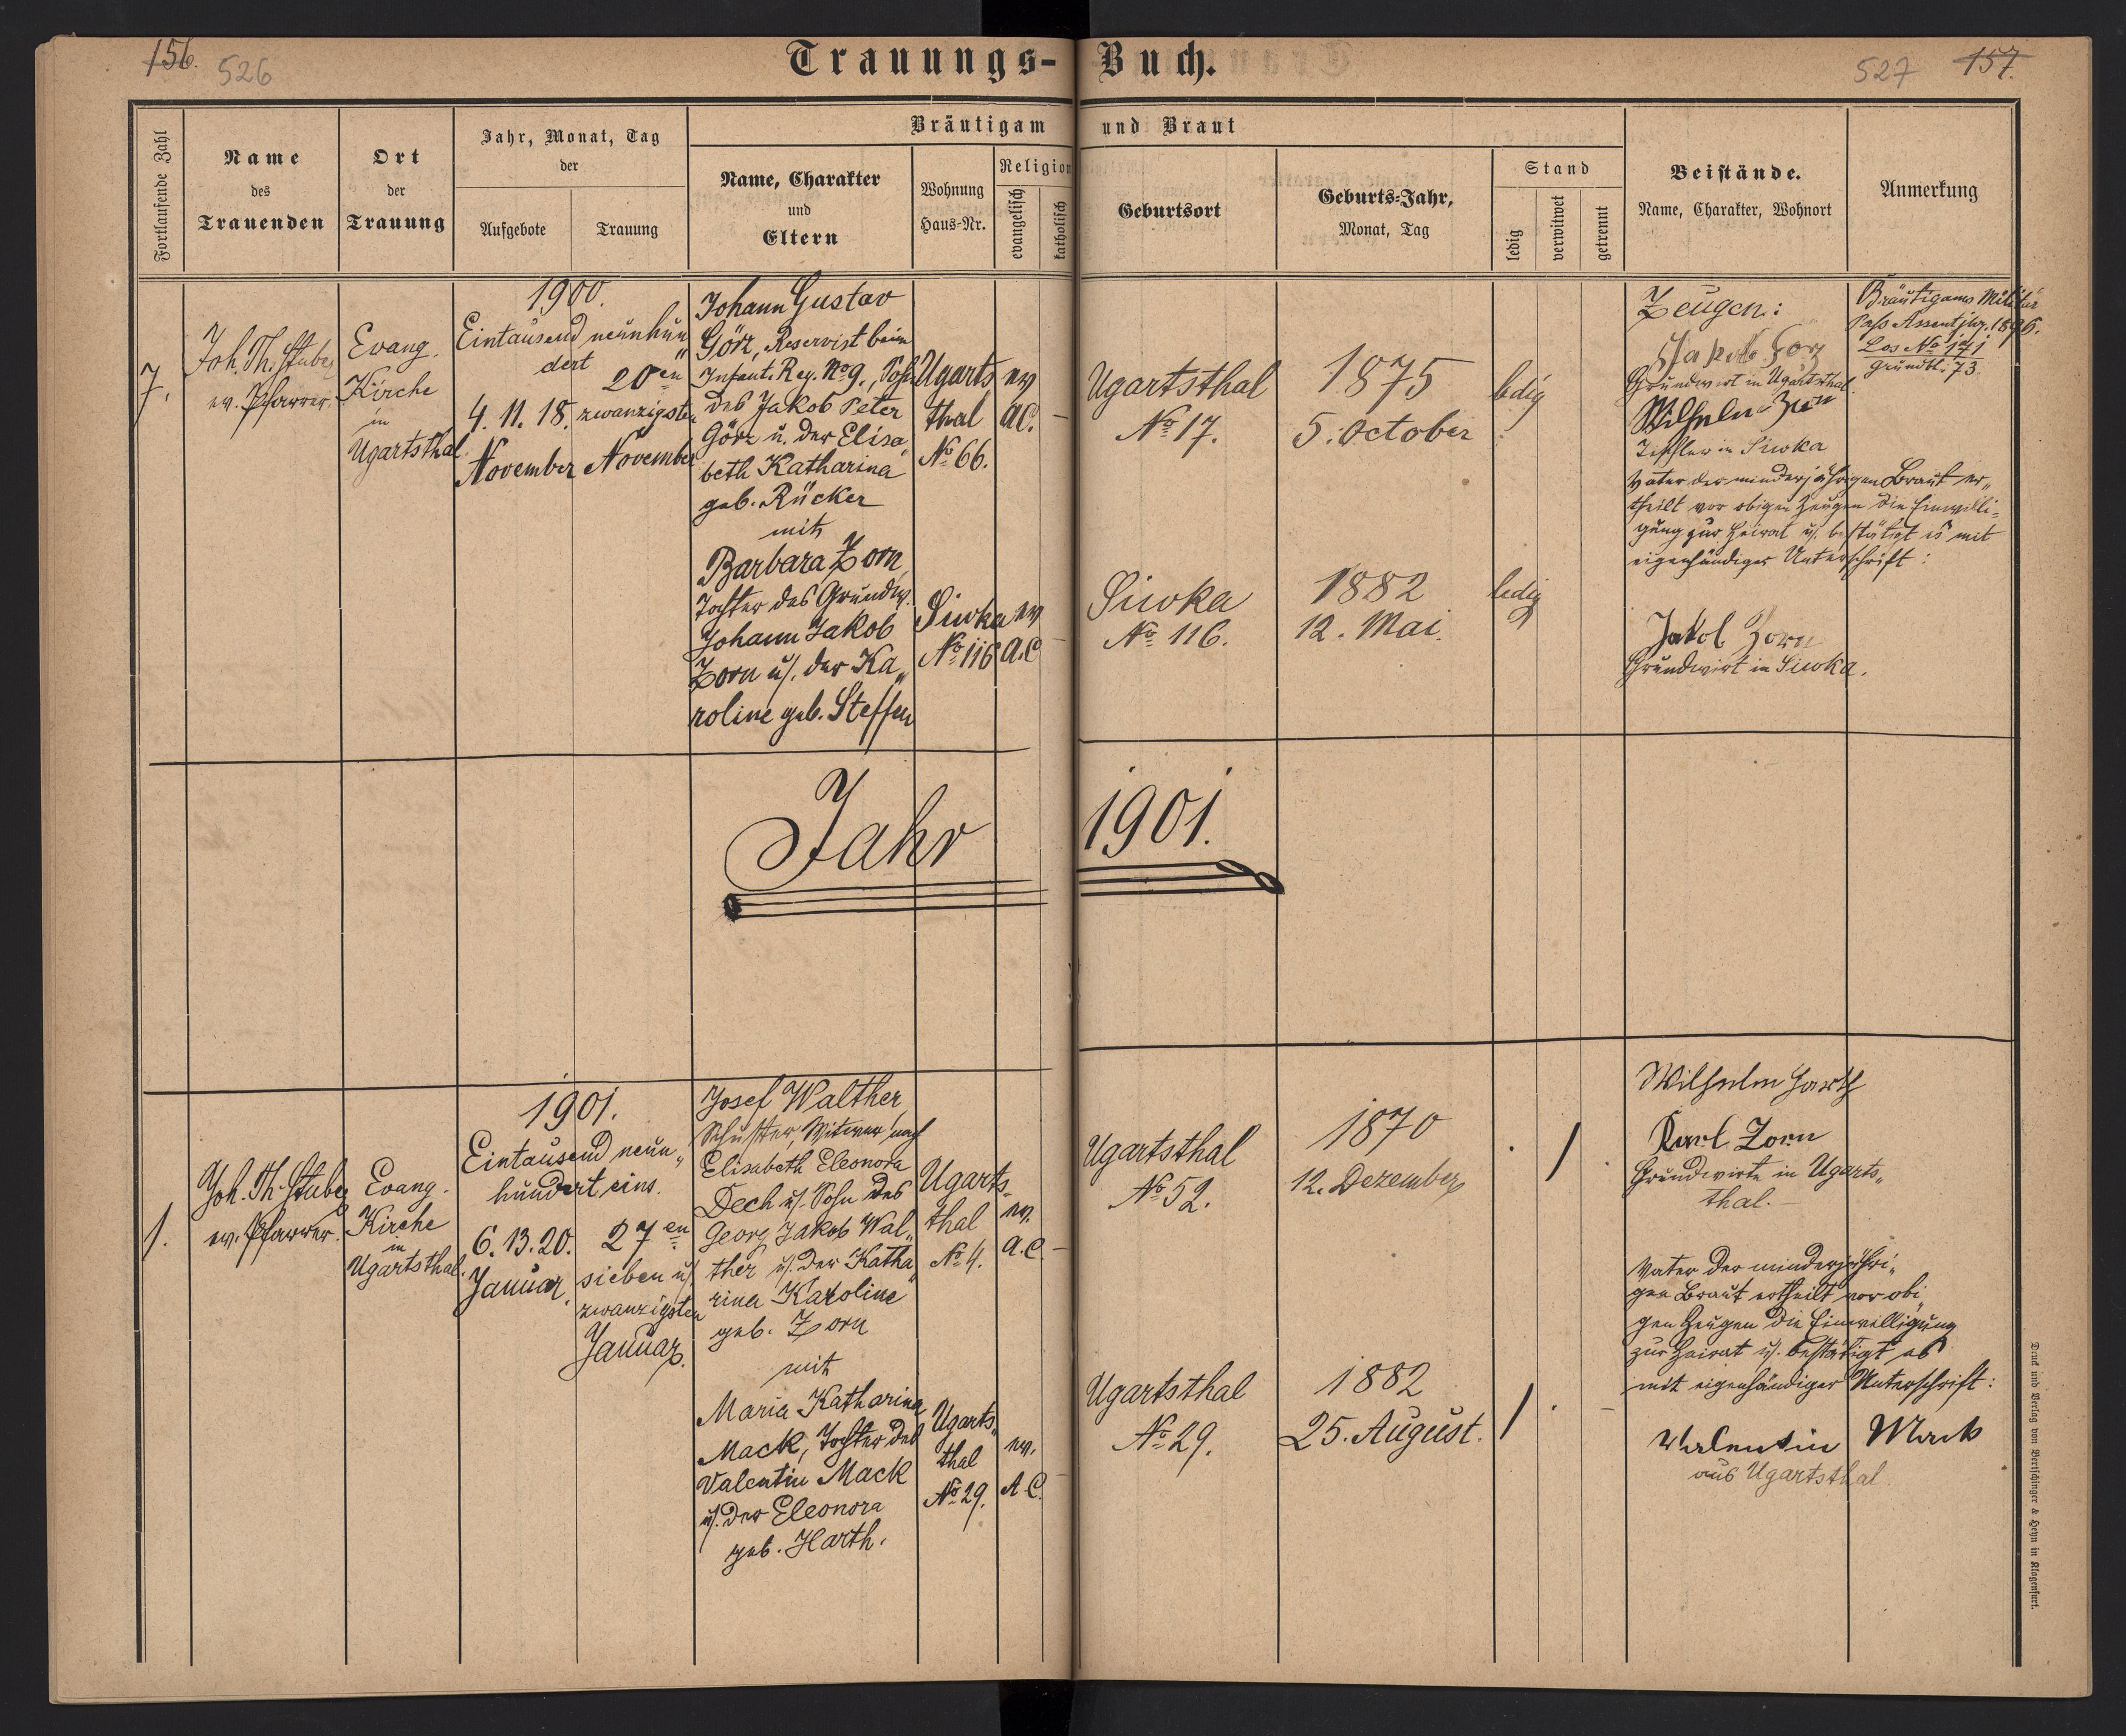 156.
526
Trauungs-Buch.
527
157.
Fortlaufende Zahl
Name
des
Trauenden
Ort
der
Trauung
Jahr, Monat, Tag
der
Aufgebote
Trauung
Bräutigam und Braut
Name, Charakter
und
Eltern
Wohnung
Haus-Nr.
Religion
evangelisch
katholisch
Geburtsort
Geburts-Jahr,
Monat, Tag
Stand
ledig
verwitwet
getrennt
Beistände.
Name, Charakter, Wohnort
Anmerkung
7.
Joh. Th. Stuber
ev. Pfarrer
Evang.
Kirche
in
Ugartsthal
1900.
Eintausend neunhun„
dert
4. 11. 18.
November
20en
zwanzigsten
November
Johann Gustav
Görz, Reservist beim
Infant. Reg. No 9., Sohn
des Jakob Peter
Görz u. der Elisa„
beth Katharina
geb. Rücker
mit
Barbara Zorn,
Tochter des Grundw.
Johann Jakob
Zorn u. der Ka„
roline geb. Steffen
Ugarts
thal
No 66.
ev
A.C.
Siwka
No 116
ev
A.C
Ugartsthal
No 17.
1875
5. October
ledig
Siwka
No 116.
1882
12. Mai.
ledig
Zeugen:
Grundwirt in Ugartsthal
Wilhelm Zorn
Tischler in Siwka
Vater der minderjährigen Braut er„
theilt vor obigen Zeugen die Einwilli„
gung zur Heirat u. bestätigt es mit
eigenhändiger Unterschrift:
Jakob Zorn
Grundwirt in Siwka.
Bräutigams Militär
Pass Assentjhr. 1896.
Los No 171
Grundbl. 73.
Jahr 1901.
1.
Joh. Th. Stuber
ev. Pfarrer.
Evang.
Kirche
in
Ugartsthal.
1901.
Eintausend neun„
hundert eins.
6. 13. 20.
Januar.
27en
sieben u.
zwanzigsten
Januar.
Josef Walther,
Schuster, Witwer nach
Elisabeth Eleonora
Dech u. Sohn des
Georg Jakob Wal„
ther u. der Katha„
rina Karoline
geb. Zorn
mit
Maria Katharina
Mack, Tochter des
Valentin Mack
u. der Eleonora
geb. Harth.
Ugarts„
thal
No 4.
ev.
A.C.
Ugarts„
thal
No 29.
ev.
A C.
Ugartsthal
No 52.
1870
12. Dezember
Ugartsthal
No 29.
1882
25. August.
Wilhelm Harth
Karl Zorn
Grundwirte in Ugarts„
thal.
Vater der minderjähri„
gen Braut ertheilt vor obi„
gen Zeugen die Einwilligung
zur Heirat u. bestätigt es
mit eigenhändiger Unterschrift:
Valentin Mack
aus Ugartsthal.
Druck und Verlag von Bertschinger & Heyn in Klagenfurt.